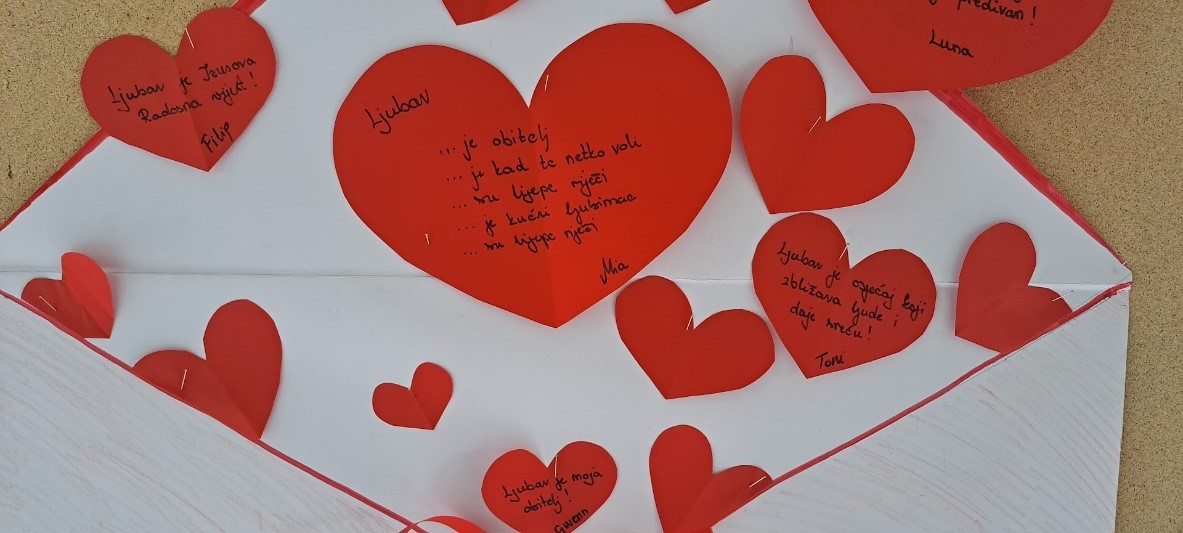 predivan!
Luna
Ljubav je Isusova
Radosna vijest!
Filip
Ljubav
... je obitelj
... je kad te netko voli
... su lijepe riječi
... je kućni ljubimac
... su lijepe riječi
Mia
Ljubav je osjećaj koji
zbližava ljude i
daje sreću!
Toni
Ljubav je moja
obitelj!
Gwenn